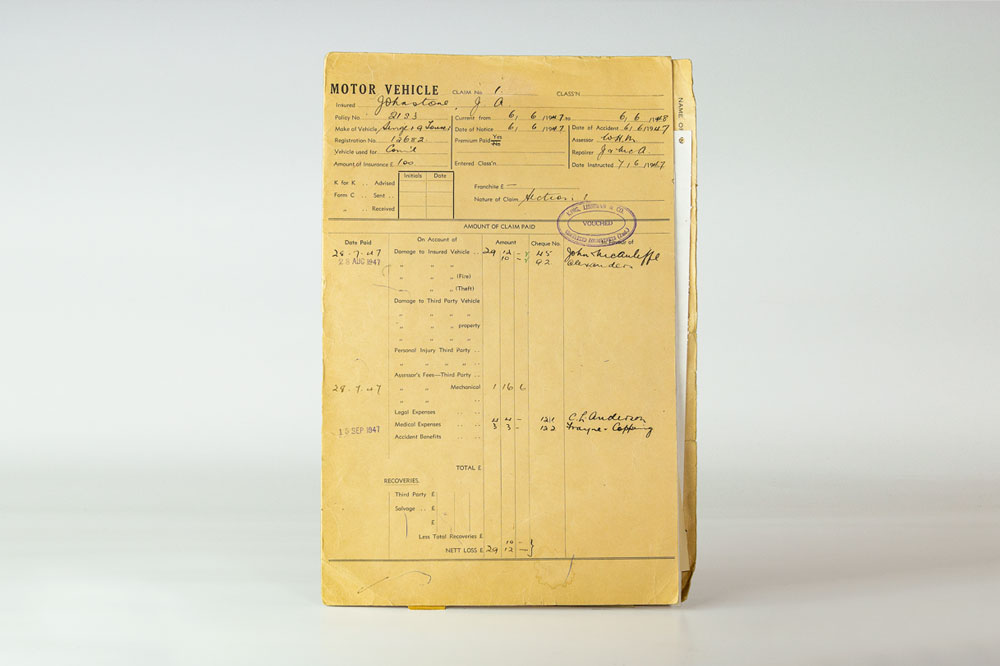 MOTOR VEHICLE CLAIM No. 1 CLASS'N
Insured Johnstone, J A
Policy No. 2193 Current from 6, 6 1947 to 6, 6, 1948
Make of Vehicle Date of Notice 6, 6 1947 Date of Accident 6, 6 1947
Registration No. 12682 Premium Paid Yes No Assessor W.H.M.
Vehicle used for Com'l Repairer
Amount of Insurance £ 100 Entered Class'n Date Instructed 7, 6 1947
Initials Date
K for K .. Advised Franchise £ —
Form C .. Sent .. Nature of Claim Section 1
„ .. Received
& CO.
VOUCHED
AMOUNT OF CLAIM PAID
Date Paid On Account of Amount Cheque No. of
28-7-47 Damage to Insured Vehicle .. 29 12 - 45 John McAuliffe
28 AUG 1947 „ „ „ 10 - 92 Alexanders
„ „ „ (Fire)
„ „ „ (Theft)
Damage to Third Party Vehicle
„ „ „ „
„ „ „ property
„ „ „ „
Personal Injury Third Party ..
„ „ „ „ ..
Assessor's Fees—Third Party ..
28-7-47 „ „ Mechanical 1 16 6
„ „ ..
Legal Expenses .. .. 4 4 - 121 C. L. Anderson
19 SEP 1947 Medical Expenses .. .. 3 3 - 122
Accident Benefits .. ..
TOTAL £
RECOVERIES
Third Party £
Salvage .. £
£
Less Total Recoveries £
10 -
NETT LOSS £ 29 12 - }
NAME O